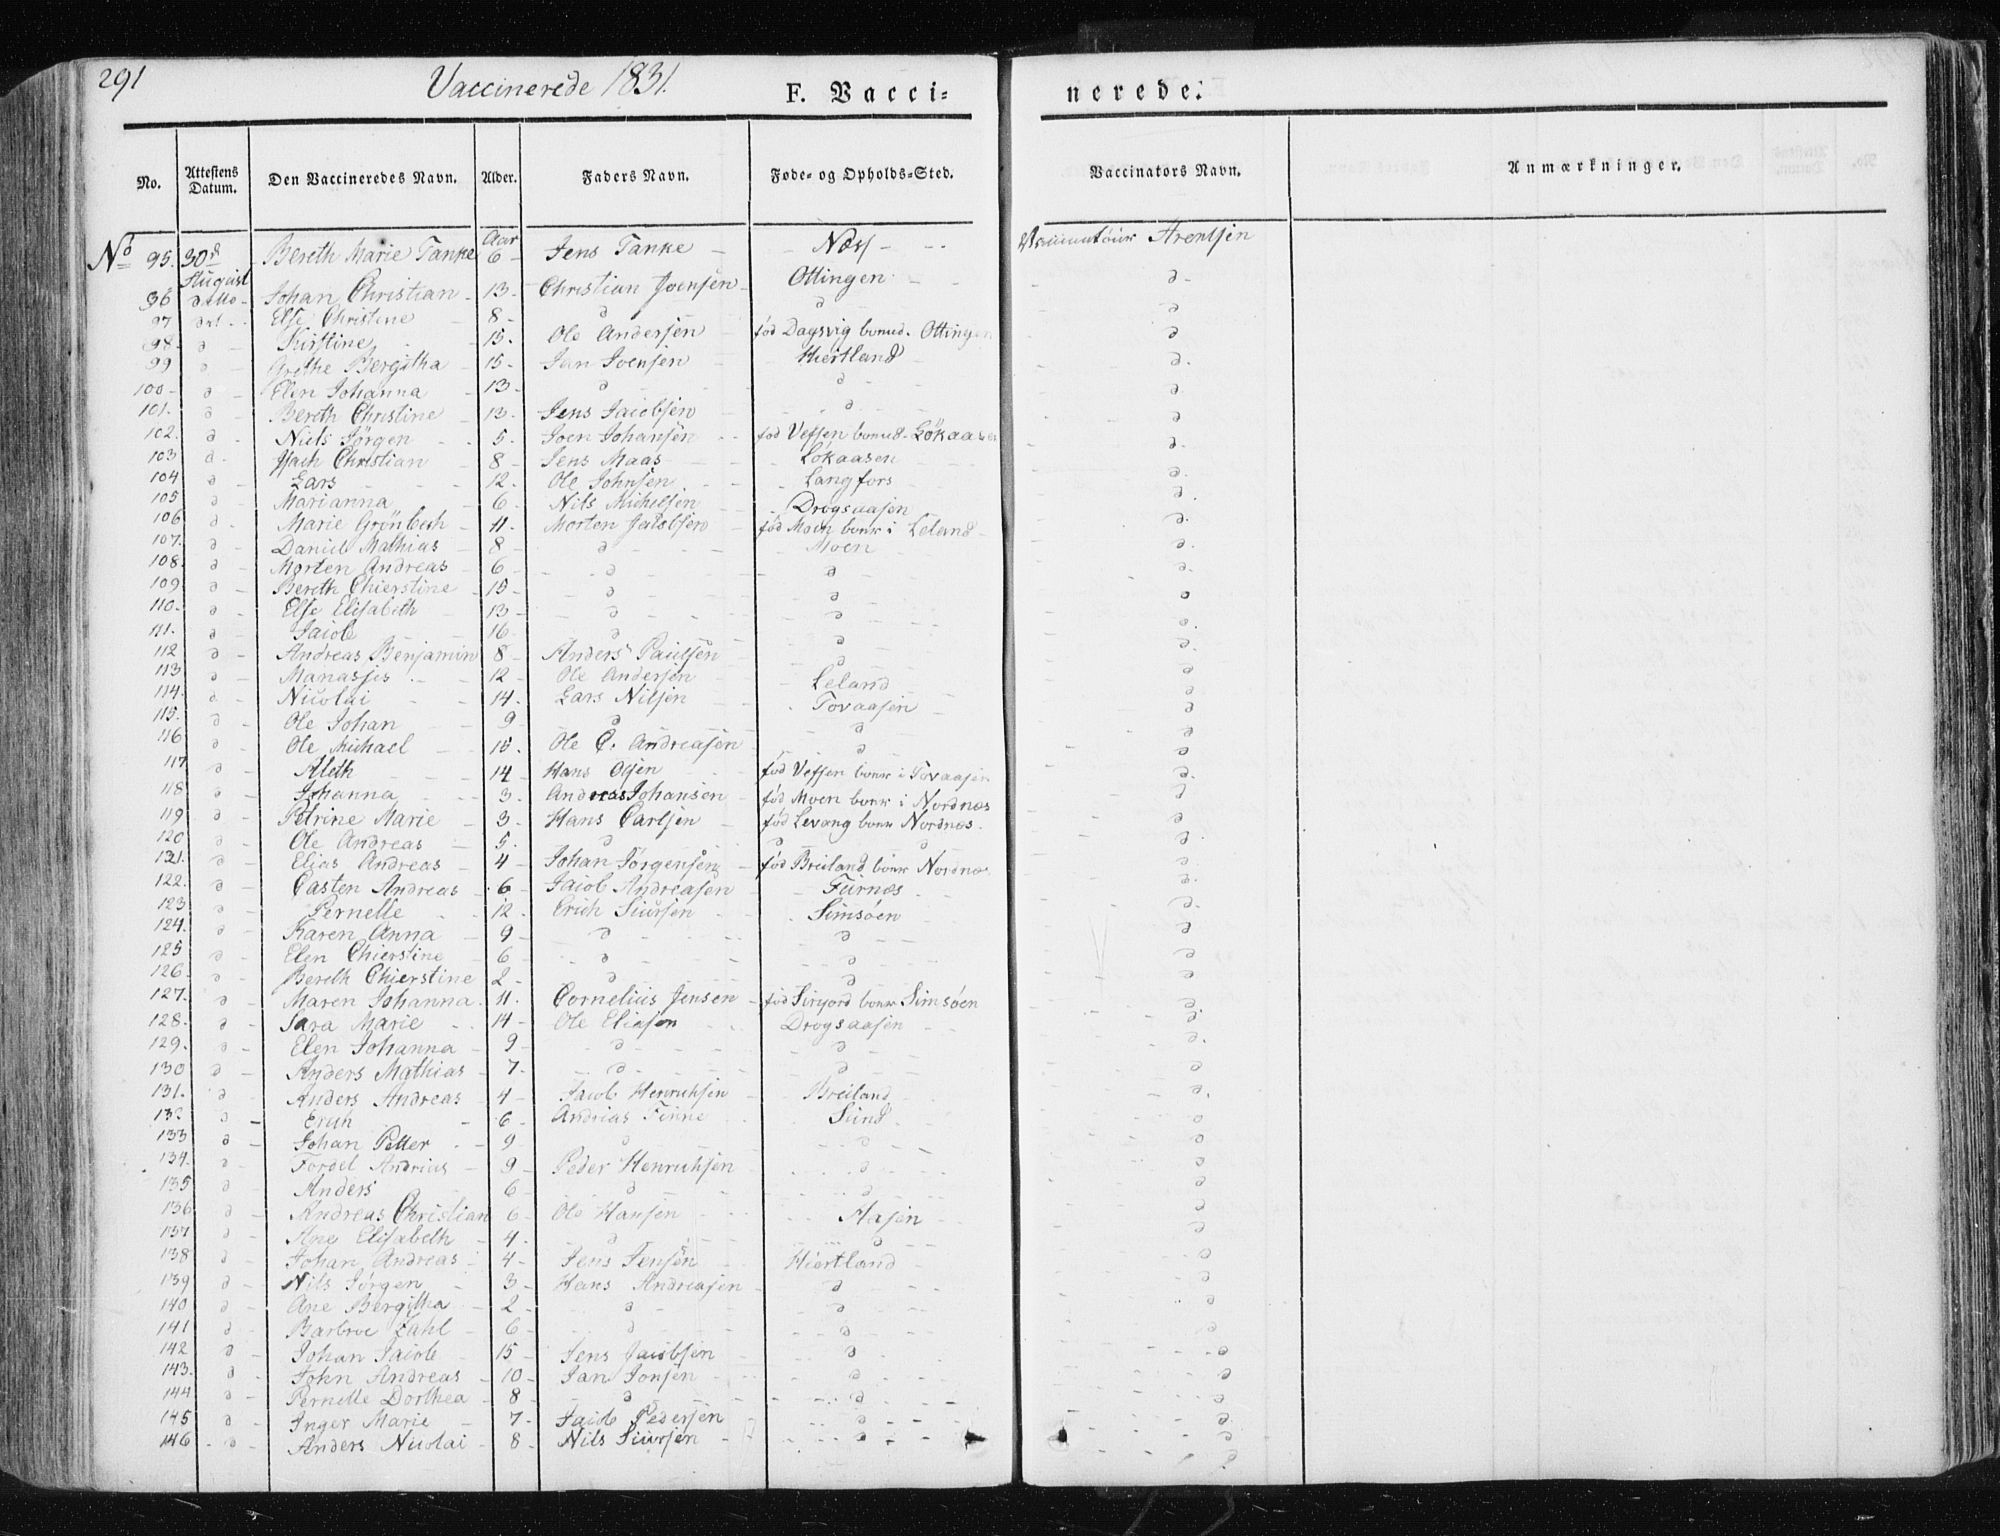 291 Vaccinerede 1831. F. Vacci= nerede.
No. Attestens Datum. Den Vaccineredes Navn. Alder. Faders Navn. Føde- og Opholds-Sted. Vaccinators Navn. Anmærkninger.
No 95. 30d August Bereth Marie Tanke Aar 6 - Jens Tanke - Næss - Arentsen
96 ditto - Johan Christian - 13 - Christian Joensen - Ottingen - d -
97 Else Christine - 8 - d d d
98. d Kirstine - 15. Ole Andersen - fød Dagsvig Ottingen d
99 d Grethe Bergitha - 15 - Jan Joensen Hiertland d.
100 - d - Elen Johanna - 13 - d - d - d
101. d - Bereth Christine 13 - Jens Jacobsen - d - d
102. d - Niels Jørgen - 5. Joen Johansen - fød Vefsen Lökaasen d.
103 d - Isach Christian - 8 - Jens Maas - Lökaasen d
104 d - Lars - 12. Ole Johnsen - Langfors d.
105 d - Marianna - 6 - Nils Michelsen - Drogsaasen d.
106 d - Marie Grönbech - 11. Morten Jacobsen - fød Moen bonr i Leland - d.
107. d - Daniel Mathias - 8 - d - Moen d
108. d - Morten Andreas - 6 - d - d d.
109 d - Bereth Chierstine - 15 - d - d d
110. d - Else Elisabeth - 13 - d - d d
111. d - Jacob - 16 - d - d d
112 d - Andreas Benjamin 8 - Anders Paulsen - d d
113 d - Manasses - 12 - Ole Andersen - Leland - d
114. d - Nicolai - 14 - Lars Nilsen - Tovaasen - d
115. d - Ole Johan - 9 - d - d d
116 d - Ole Michael - 15. Ole C. Andreasen d d
117 d - Aleth - 14 - Hans Olsen - fød Vefsen bonr i Tovaasen d.
118 d - Johanna - 3. Andreas Johansen - fød Moen bonr i Nordnæs d
119 d - Petrine Marie - 3. Hans Carlsen - fød Levang bonr Nordnæs. d
120 d - Ole Andreas - 5. d d d
121. d - Elias Andreas - 4 - Johan Jørgensen - fød Breiland bonr Nordnæs d
122. d - Casten Andreas - 6 - Jacob Andreasen - Furnæs d.
123 d - Pernelle - 12 - Erich Siursen - Simsöen - d.
124. d - Karen Anna - 9 - d - d d
125 d - Elen Chierstine - 6 - d - d d
126. d - Bereth Chierstine 2 - d d d
127. d - Maren Johanna - 11. Cornelius Jensen - fød bonr Simsöen d.
128. d - Sara Marie - 14 - Ole Eliasen Drogsaasen d.
129. d - Elen Johanna - 9 - d - d d.
130 d - Anders Mathias - 7. d - d d
131. d - Anders Andreas - 4 - Jacob Henrichsen - Breiland d.
132 d - Erich - 6. Andreas Finne Sund d
133 d - Johan Petter - 9 d d d
134. d - Andrias - 9 - Peder Henrichsen d d
135 d - Anders 6 - d d d
136 d - Andreas Christian 6 - Ole Hansen - d
137 d - Ane Elisabeth - 4. d d d
138 d - Johan Andreas - 4 - Jens Jensen Hiertland d
139 d - Nils Jørgen - 3 - Hans Andreasen - d d
140 d - Ane Bergitha - 2 - d d d
141 d - Barbroe Zahl - 6 - d - d d
142 d - Johan Jacob - 15 - Jens Jacobsen d d
143. d - John Andreas - 10 - Jan Jonsen - d d
144 d - Pernelle Dorthea - 8 - d - d d
145 d - Inger Marie - 7 - Jacob Pedersen d d
146 d - Anders Nicolai - 8 - Nils Siursen - d d